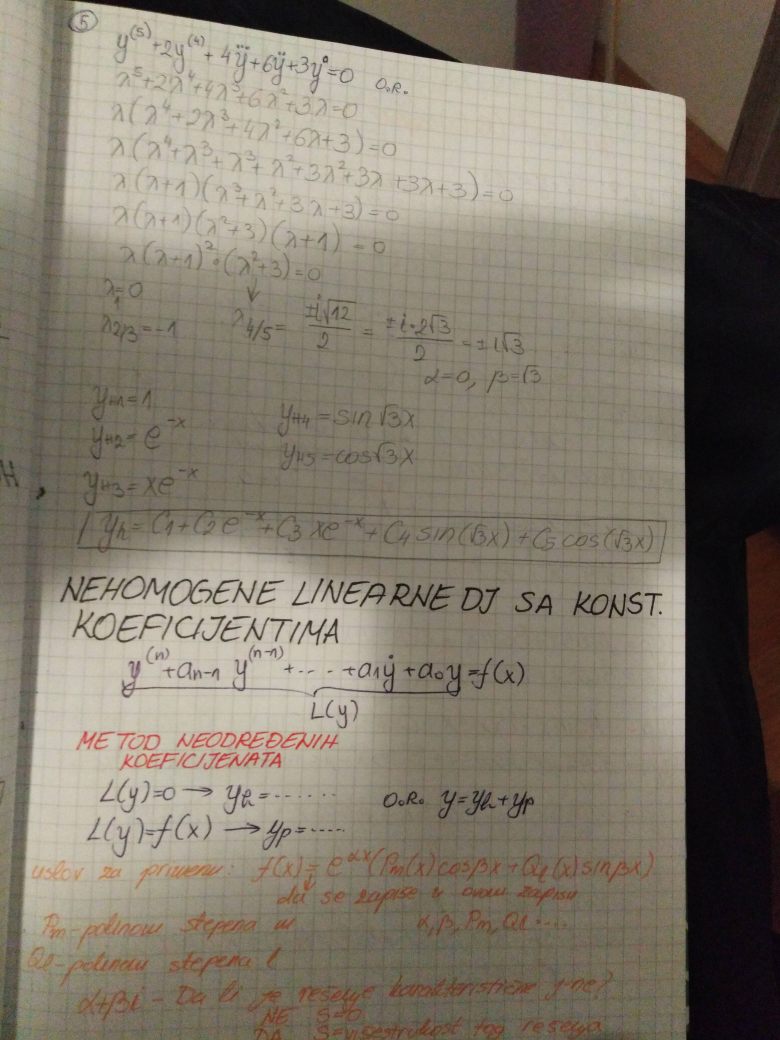 5
y^(5)+2y^(4)+4y⃛+6ÿ+3ẏ=0 O.R.
λ^5+2λ^4+4λ^3+6λ^2+3λ=0
λ(λ^4+2λ^3+4λ^2+6λ+3)=0
λ(λ^4+λ^3+λ^3+λ^2+3λ^2+3λ+3λ+3)=0
λ(λ+1)(λ^3+λ^2+3λ+3)=0
λ(λ+1)(λ^2+3)(λ+1)=0
λ(λ+1)^2·(λ^2+3)=0
λ1=0
λ2/3=-1 λ4/5= ±i√12/2 = ±i·2√3/2 = ±i√3
α=0, β=√3
yH1=1 yH4=sin√3x
yH2=e^-x yH5=cos√3x
yH3=xe^-x
yh=C1+C2e^-x+C3xe^-x+C4sin(√3x)+C5cos(√3x)
NEHOMOGENE LINEARNE DJ SA KONST.
KOEFICIJENTIMA
y^(n)+an-1 y^(n-1)+....+a1ẏ+a0y=f(x)
L(y)
METOD NEODREĐENIH
KOEFICIJENATA
L(y)=0 → yh=...... O.R. y=yh+yp
L(y)=f(x) → yp=.....
uslov za primenu: f(x)=e^αx(Pm(x)cosβx+Ql(x)sinβx)
da se zapiše u ovom zapisu
Pm-polinom stepena m α,β,Pm,Ql...
Ql-polinom stepena l
α+βi - Da li je rešenje karakteristične j-ne?
NE S=0
DA S=višestrukost tog rešenja